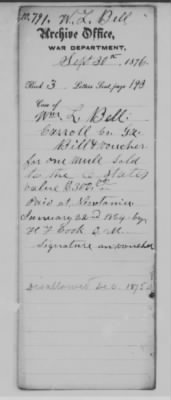 No. 791. W. L. Bell
Archive Office,
WAR DEPARTMENT,
Sept 30th 1876
Book 3 Letters Sent, page 193
Case of
Wm L. Bell.
Carroll Co. Ga.
Bill & voucher
for one mule sold
to the C. States
value $300
Paid at
January 22nd 1864 by
Cook
Signature on voucher
Disallowed Dec. 1875